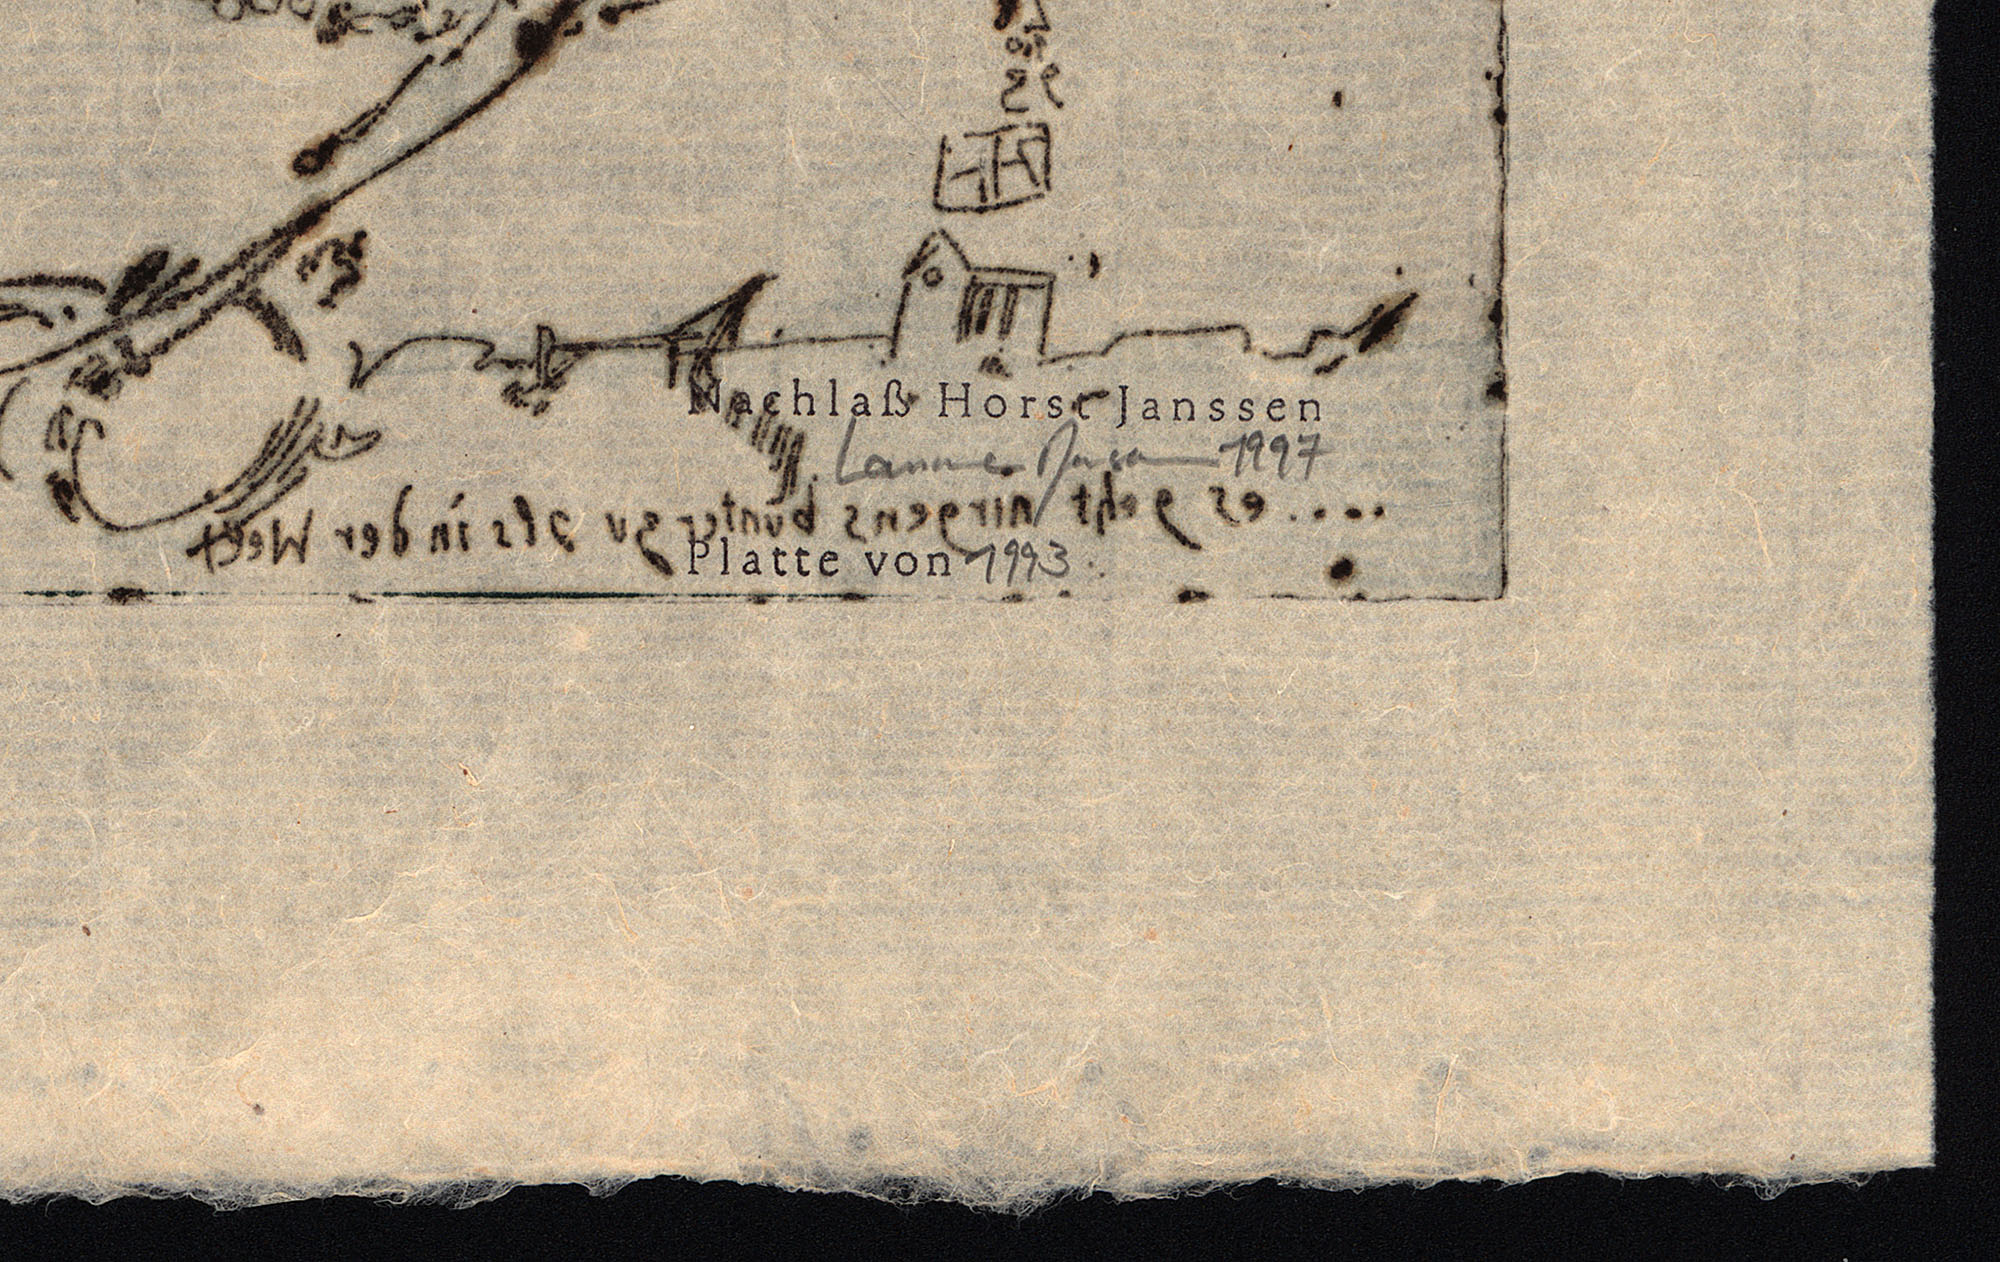 93
Nachlaß Horst Janssen
Lamme Janssen 1997
.... es geht nirgens bunter zu als in der Welt
Platte von 1993